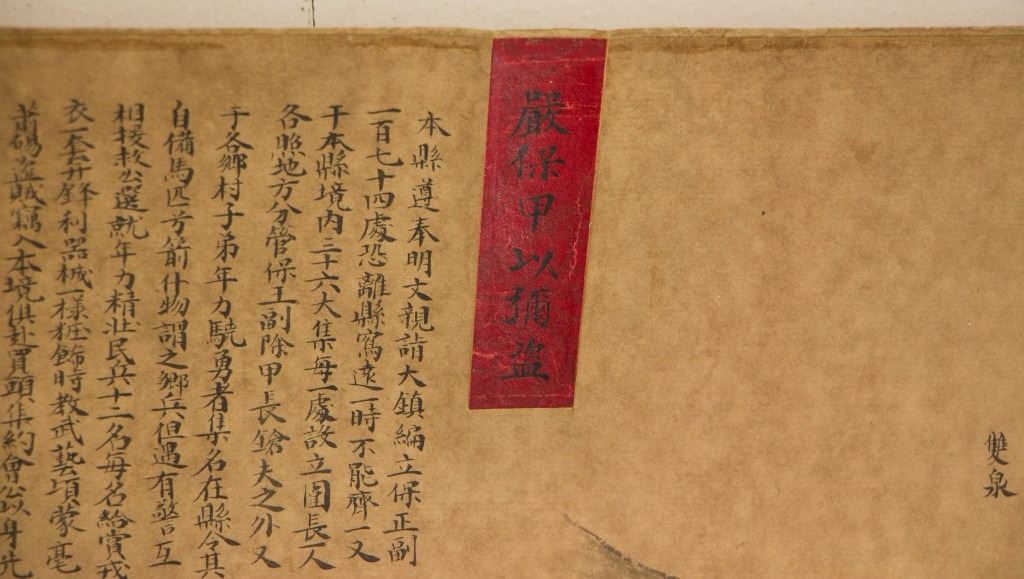 雙泉
嚴保甲以彌盜
本縣遵奉明文親詣大鎮編立保正副
一百七十四處恐離縣寫遠一時不能齊一又
于本縣境內三十六大集每一處設立團長一人
各照地方分管保正副除甲長鎗夫之外又
于各鄉村子弟年力驍勇者集名在縣令其
自備馬匹弓箭什物謂之鄉兵但遇有警互
相援救公選就年力精壯民兵十二名每名給賞戎
衣一套并鋒利器械一樣粧飾時教武藝頃蒙亳
蕭碭盜賊竊入本境俱赴買頭集約會公以身先